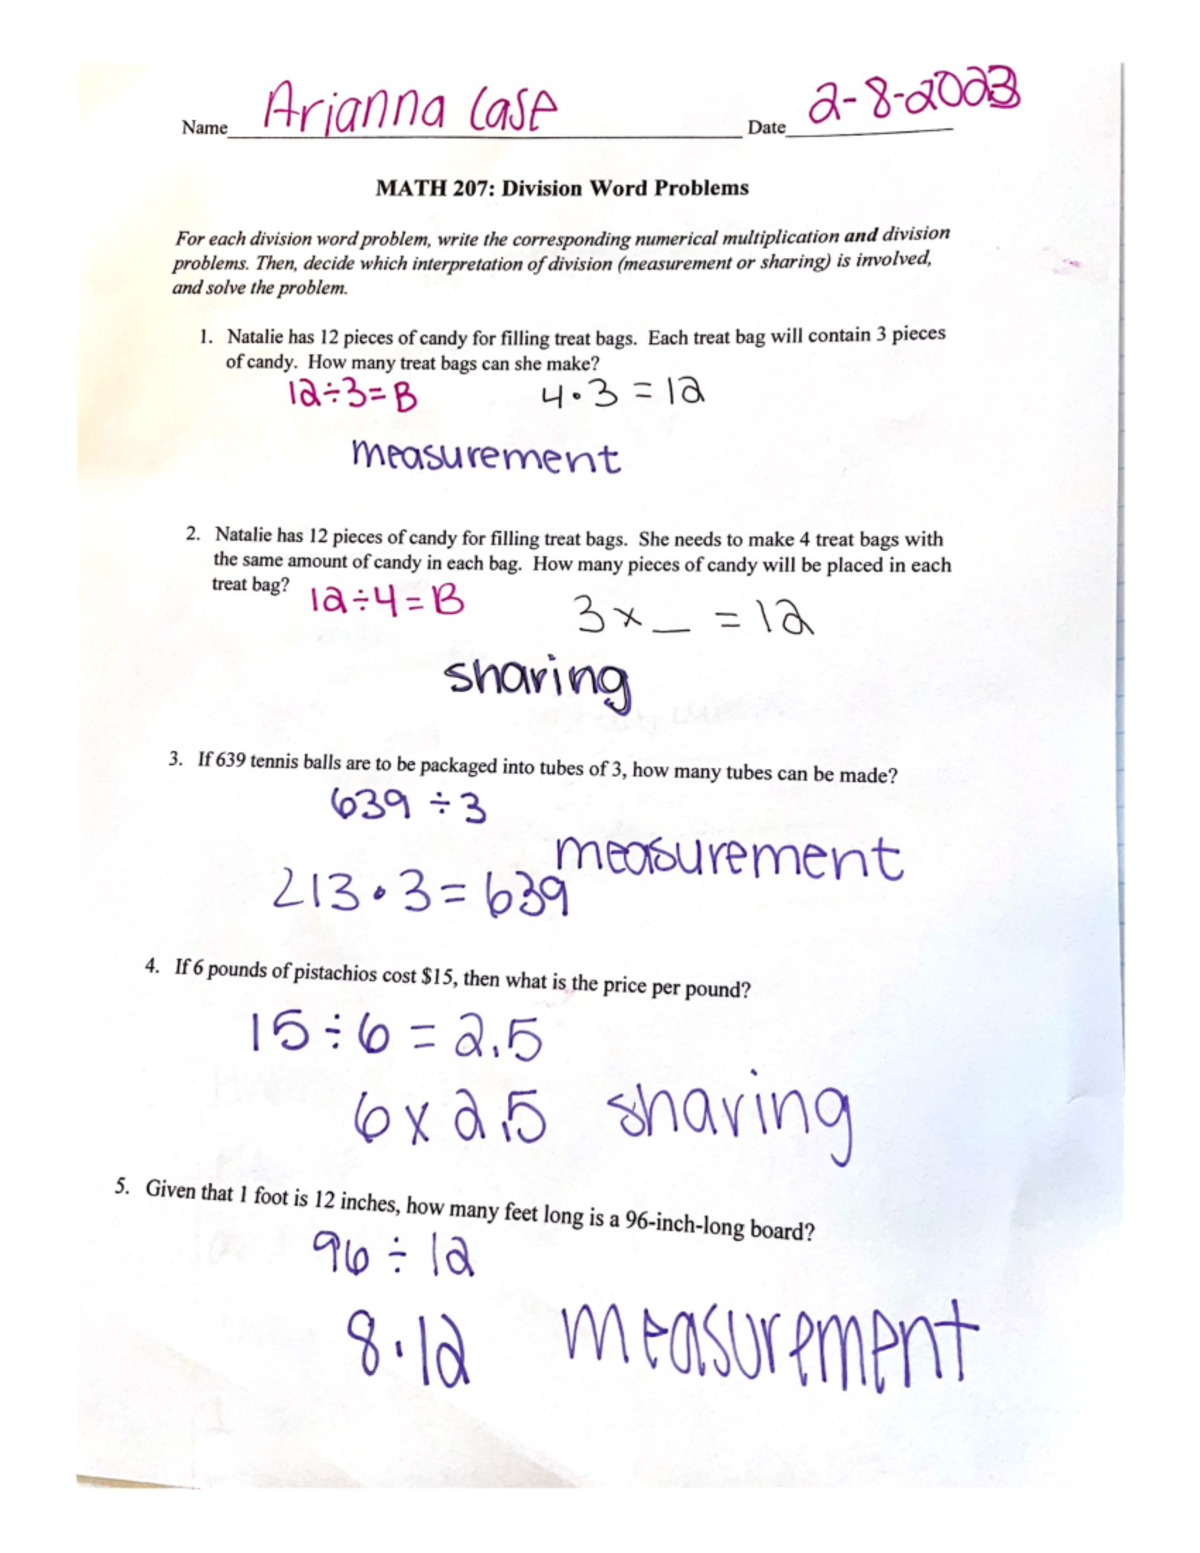 Name Arianna Case Date 2-8-2023
MATH 207: Division Word Problems
For each division word problem, write the corresponding numerical multiplication and division
problems. Then, decide which interpretation of division (measurement or sharing) is involved,
and solve the problem.
1. Natalie has 12 pieces of candy for filling treat bags. Each treat bag will contain 3 pieces
of candy. How many treat bags can she make?
12÷3=B 4·3=12
measurement
2. Natalie has 12 pieces of candy for filling treat bags. She needs to make 4 treat bags with
the same amount of candy in each bag. How many pieces of candy will be placed in each
treat bag? 12÷4=B 3×_=12
sharing
3. If 639 tennis balls are to be packaged into tubes of 3, how many tubes can be made?
639÷3
measurement
213·3=639
4. If 6 pounds of pistachios cost $15, then what is the price per pound?
15÷6=2.5
6×2.5 sharing
5. Given that 1 foot is 12 inches, how many feet long is a 96-inch-long board?
96÷12
8·12 measurement